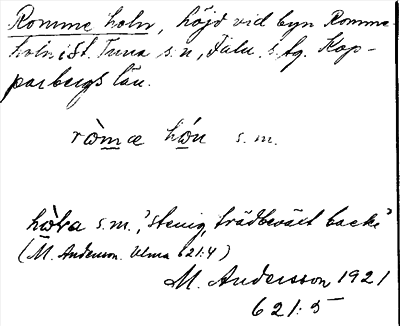 Romme holn, höjd vid byn Romme-
holn i St. Tuna s:n, Falu s. fg. Kop-
parbergs län.
ròmæ hón s. m.
hòᴌa s.m., "stenig, trädbeväxt backe"
(M. Andersson. Ulma 621:4)
M. Andersson 1921
621:5